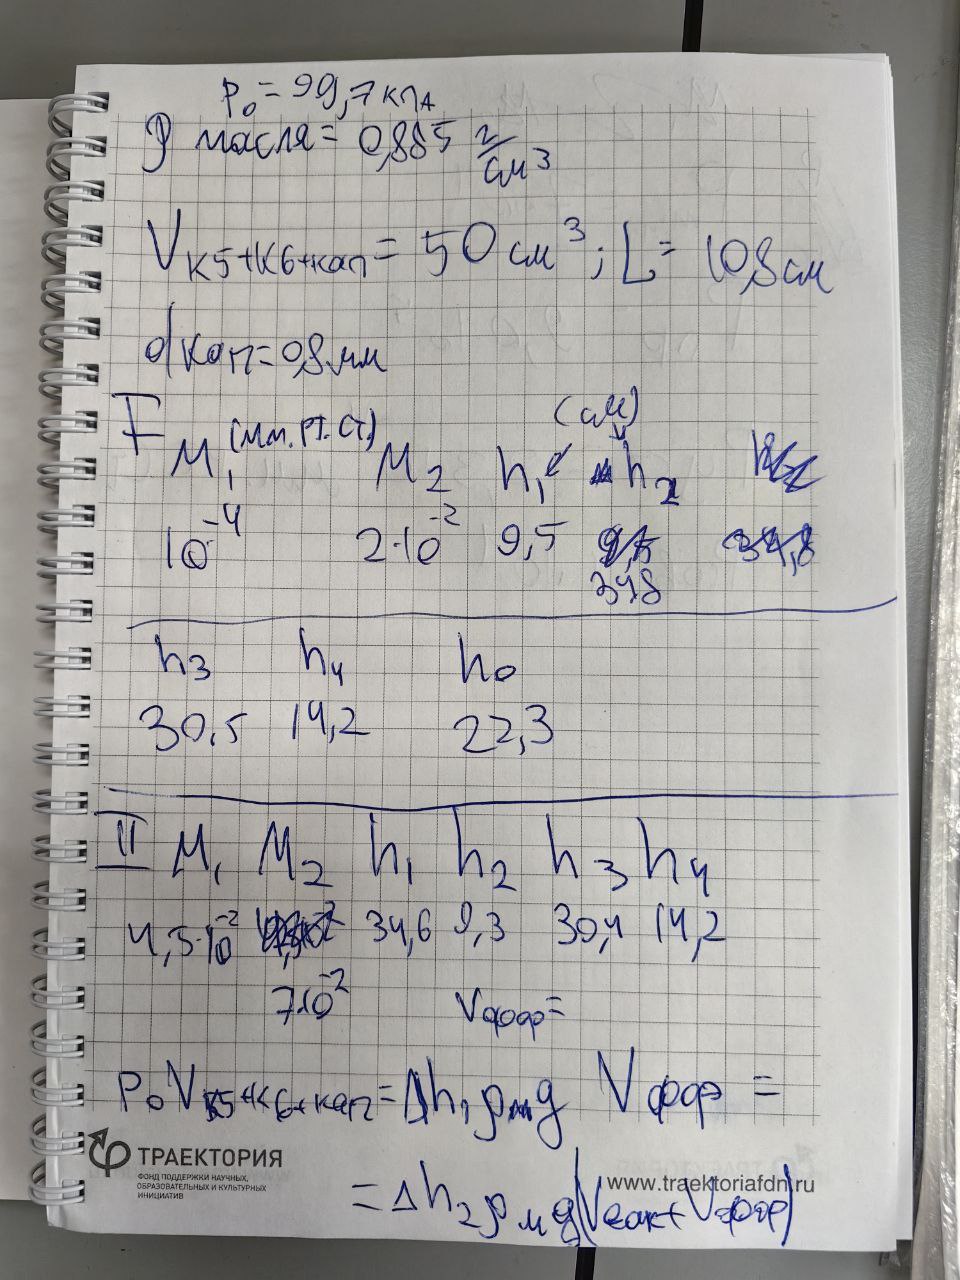 P₀ = 99,7 кПа
ρ масла = 0,885 г/см³
V к5+к6+кап = 50 см³; L = 10,8 см
d кап = 0,8 мм
I M₁ (мм.рт.ст.) M₂ h₁ (см) h₂
10⁻⁴ 2·10⁻² 9,5 34,8
h₃ h₄ h₀
30,5 14,2 22,3
II M₁ M₂ h₁ h₂ h₃ h₄
4,3·10⁻² 34,6 9,3 30,4 14,2
7·10⁻² Vфор =
P₀ V к5+к6+кап = Δh₁ ρм g Vфор =
ТРАЕКТОРИЯ
ФОНД ПОДДЕРЖКИ НАУЧНЫХ,
ОБРАЗОВАТЕЛЬНЫХ И КУЛЬТУРНЫХ
ИНИЦИАТИВ
www.traektoriafdn.ru
= Δh₂ ρм g (V + Vфор)